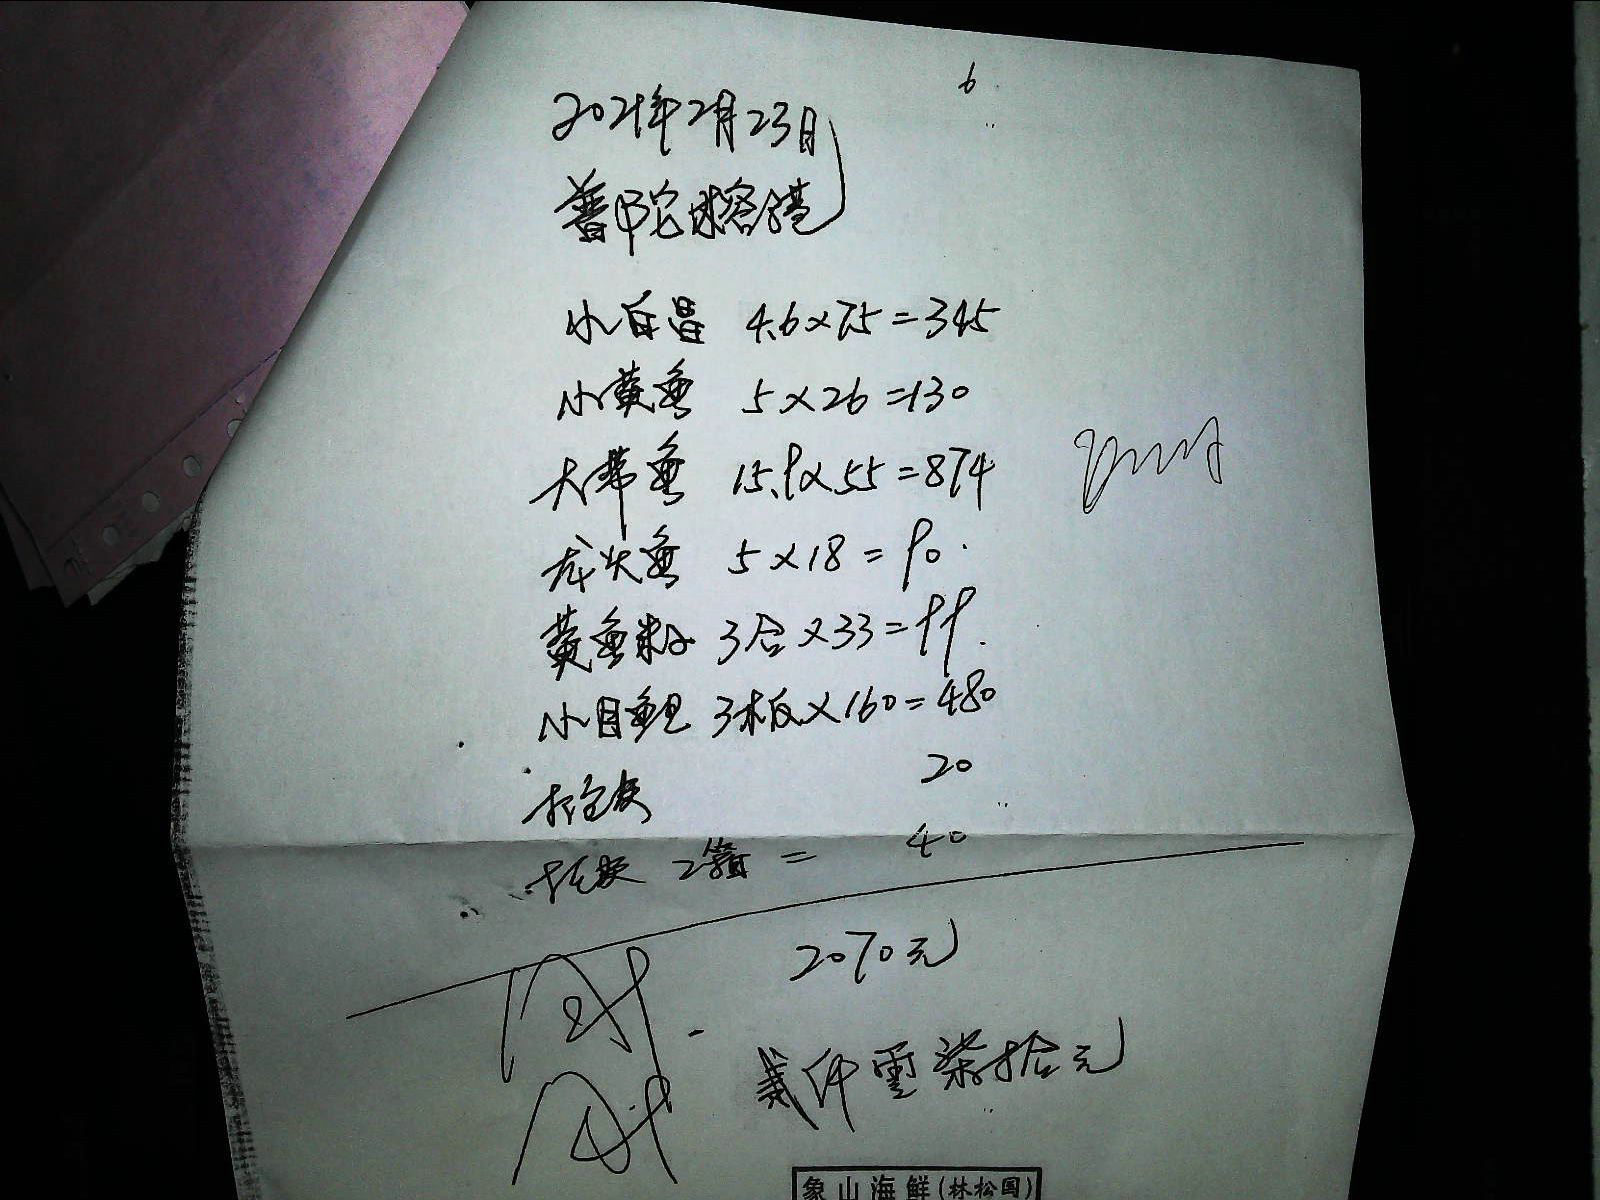 6
2021年2月23日
普陀榕错
小白昌 4.6×75=345
小黄鱼 5×26=130
大带鱼 15.9×55=874
龙头鱼 5×18=90
黄鱼籽 3合×33=99
小目鱼 3板×160=480
20
2箱= 40
2070元
贰仟零柒拾元
象山海鲜(林松国)